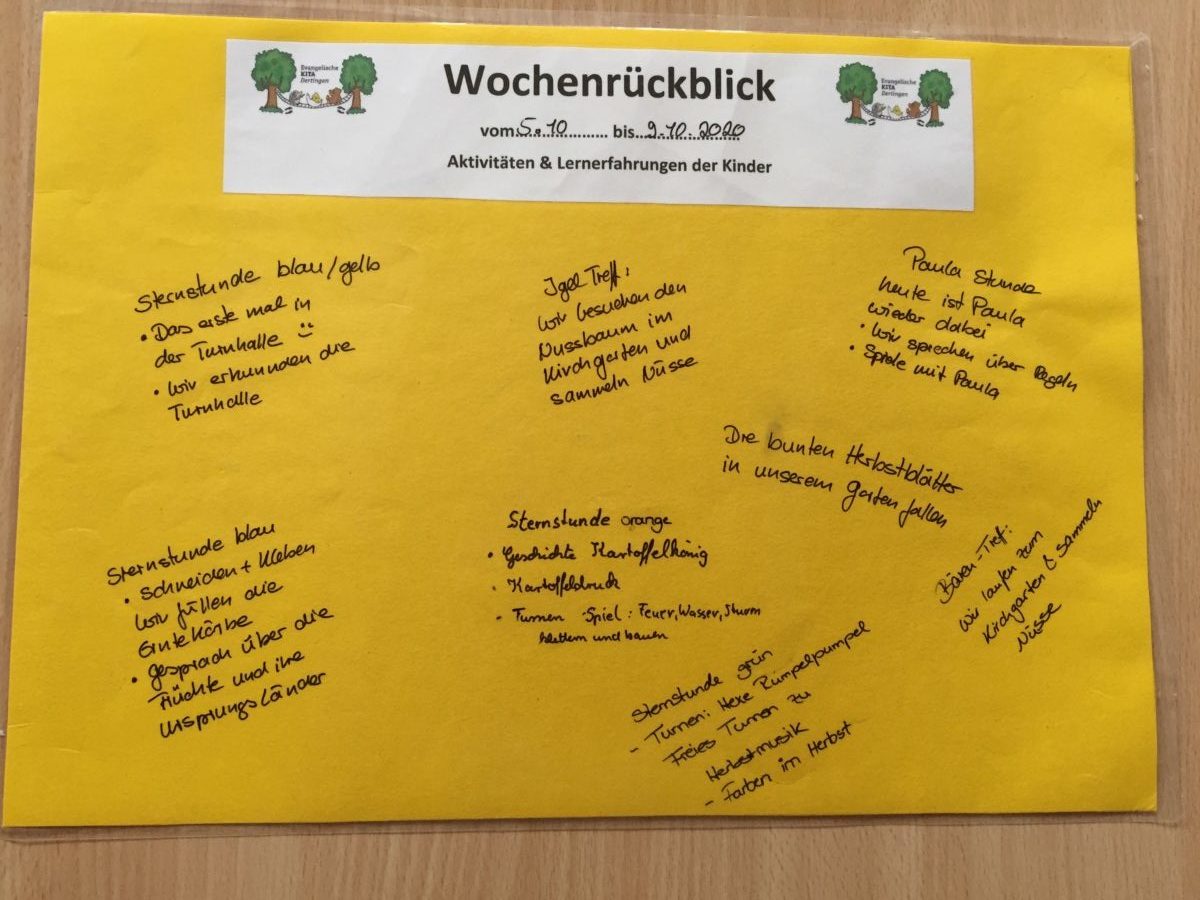 Evangelische
KITA
Dertingen
Wochenrückblick
vom 5.10 bis 9.10.2020
Aktivitäten & Lernerfahrungen der Kinder
Evangelische
KITA
Dertingen
Sternstunde blau/gelb
• Das erste mal in
der Turnhalle
• wir erkunnden die
Turnhalle
Igel Treff:
wir besuchen den
Nussbaum im
Kirchgarten und
sammeln Nüsse
Paula Stunde
heute ist Paula
wieder dabei
• wir sprechen über Regeln
• Spiele mit Paula
Die bunten Herbstblätter
in unserem Garten fallen
Sternstunde blau
• schneiden + kleben
wir füllen die
Erntekörbe
• gespräch über die
Früchte und ihre
Ursprungsländer
Sternstunde orange
• Geschichte Kartoffelkönig
• Kartoffeldruck
- Turnen Spiel: Feuer, Wasser, Sturm
klettern und bauen
Bären-Treff:
wir laufen zum
Kirchgarten & sammeln
Nüsse
Sternstunde grün
- Turnen: Hexe Rumpelpumpel
Freies Turnen zu
Herbstmusik
- Farben im Herbst